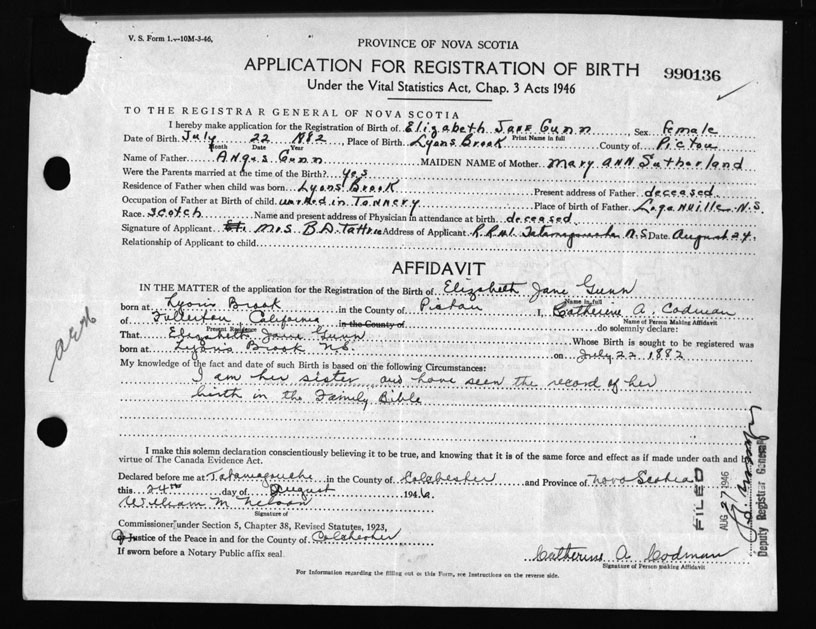 V. S. Form 1.-10M-3-46.
PROVINCE OF NOVA SCOTIA
APPLICATION FOR REGISTRATION OF BIRTH
990136
Under the Vital Statistics Act, Chap. 3 Acts 1946
TO THE REGISTRAR GENERAL OF NOVA SCOTIA
I hereby make application for the Registration of Birth of Elizabeth Jane Gunn, Sex female
Print Name in full
Date of Birth July 22 1882, Place of Birth Lyons Brook County of Pictou
Month Date Year
Name of Father Angus Gunn MAIDEN NAME of Mother Mary Ann Sutherland
Were the Parents married at the time of the Birth? yes
Residence of Father when child was born Lyons Brook Present address of Father deceased
Occupation of Father at Birth of child worked in Tannery Place of birth of Father Loganville N.S.
Race Scotch Name and present address of Physician in attendance at birth deceased
Signature of Applicant Mrs B.D. Tattrie Address of Applicant R.R. No1 Tatamagouche N.S Date August 24.
Relationship of Applicant to child
AFFIDAVIT
IN THE MATTER of the application for the Registration of the Birth of Elizabeth Jane Gunn
Name in full
born at Lyons Brook in the County of Pictou I, Catherine A Codman
Name of Person Making Affidavit
of Fullerton California in the County of do solemnly declare:
Present Residence
That Elizabeth Jane Gunn Whose Birth is sought to be registered was
born at Lyons Brook N.S. on July 22 1882
My knowledge of the fact and date of such Birth is based on the following Circumstances:
I am her sister and have seen the record of her
birth in the Family Bible
I make this solemn declaration conscientiously believing it to be true, and knowing that it is of the same force and effect as if made under oath and by
virtue of The Canada Evidence Act.
Declared before me at Tatamagouche in the County of Colchester and Province of Nova Scotia
this 24th day of August 1946
William M Nelson
Signature of
Commissioner under Section 5, Chapter 38, Revised Statutes, 1923,
Justice of the Peace in and for the County of Colchester
If sworn before a Notary Public affix seal
Catherine A Codman
Signature of Person making Affidavit
For Information regarding the filling out of this Form, see Instructions on the reverse side.
FILED
AUG 27 1946
Deputy Registrar General